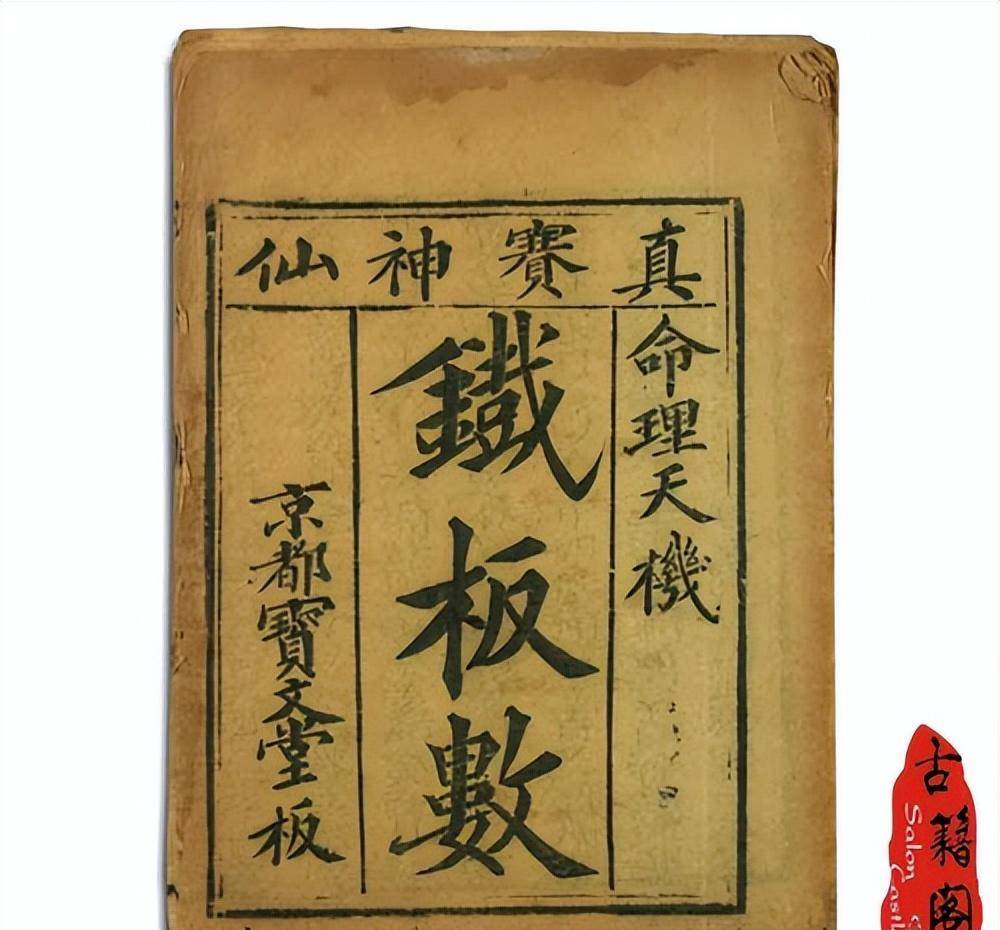 真賽神仙
命理天機
鐵板數
京都寶文堂板
古籍阁
Salon